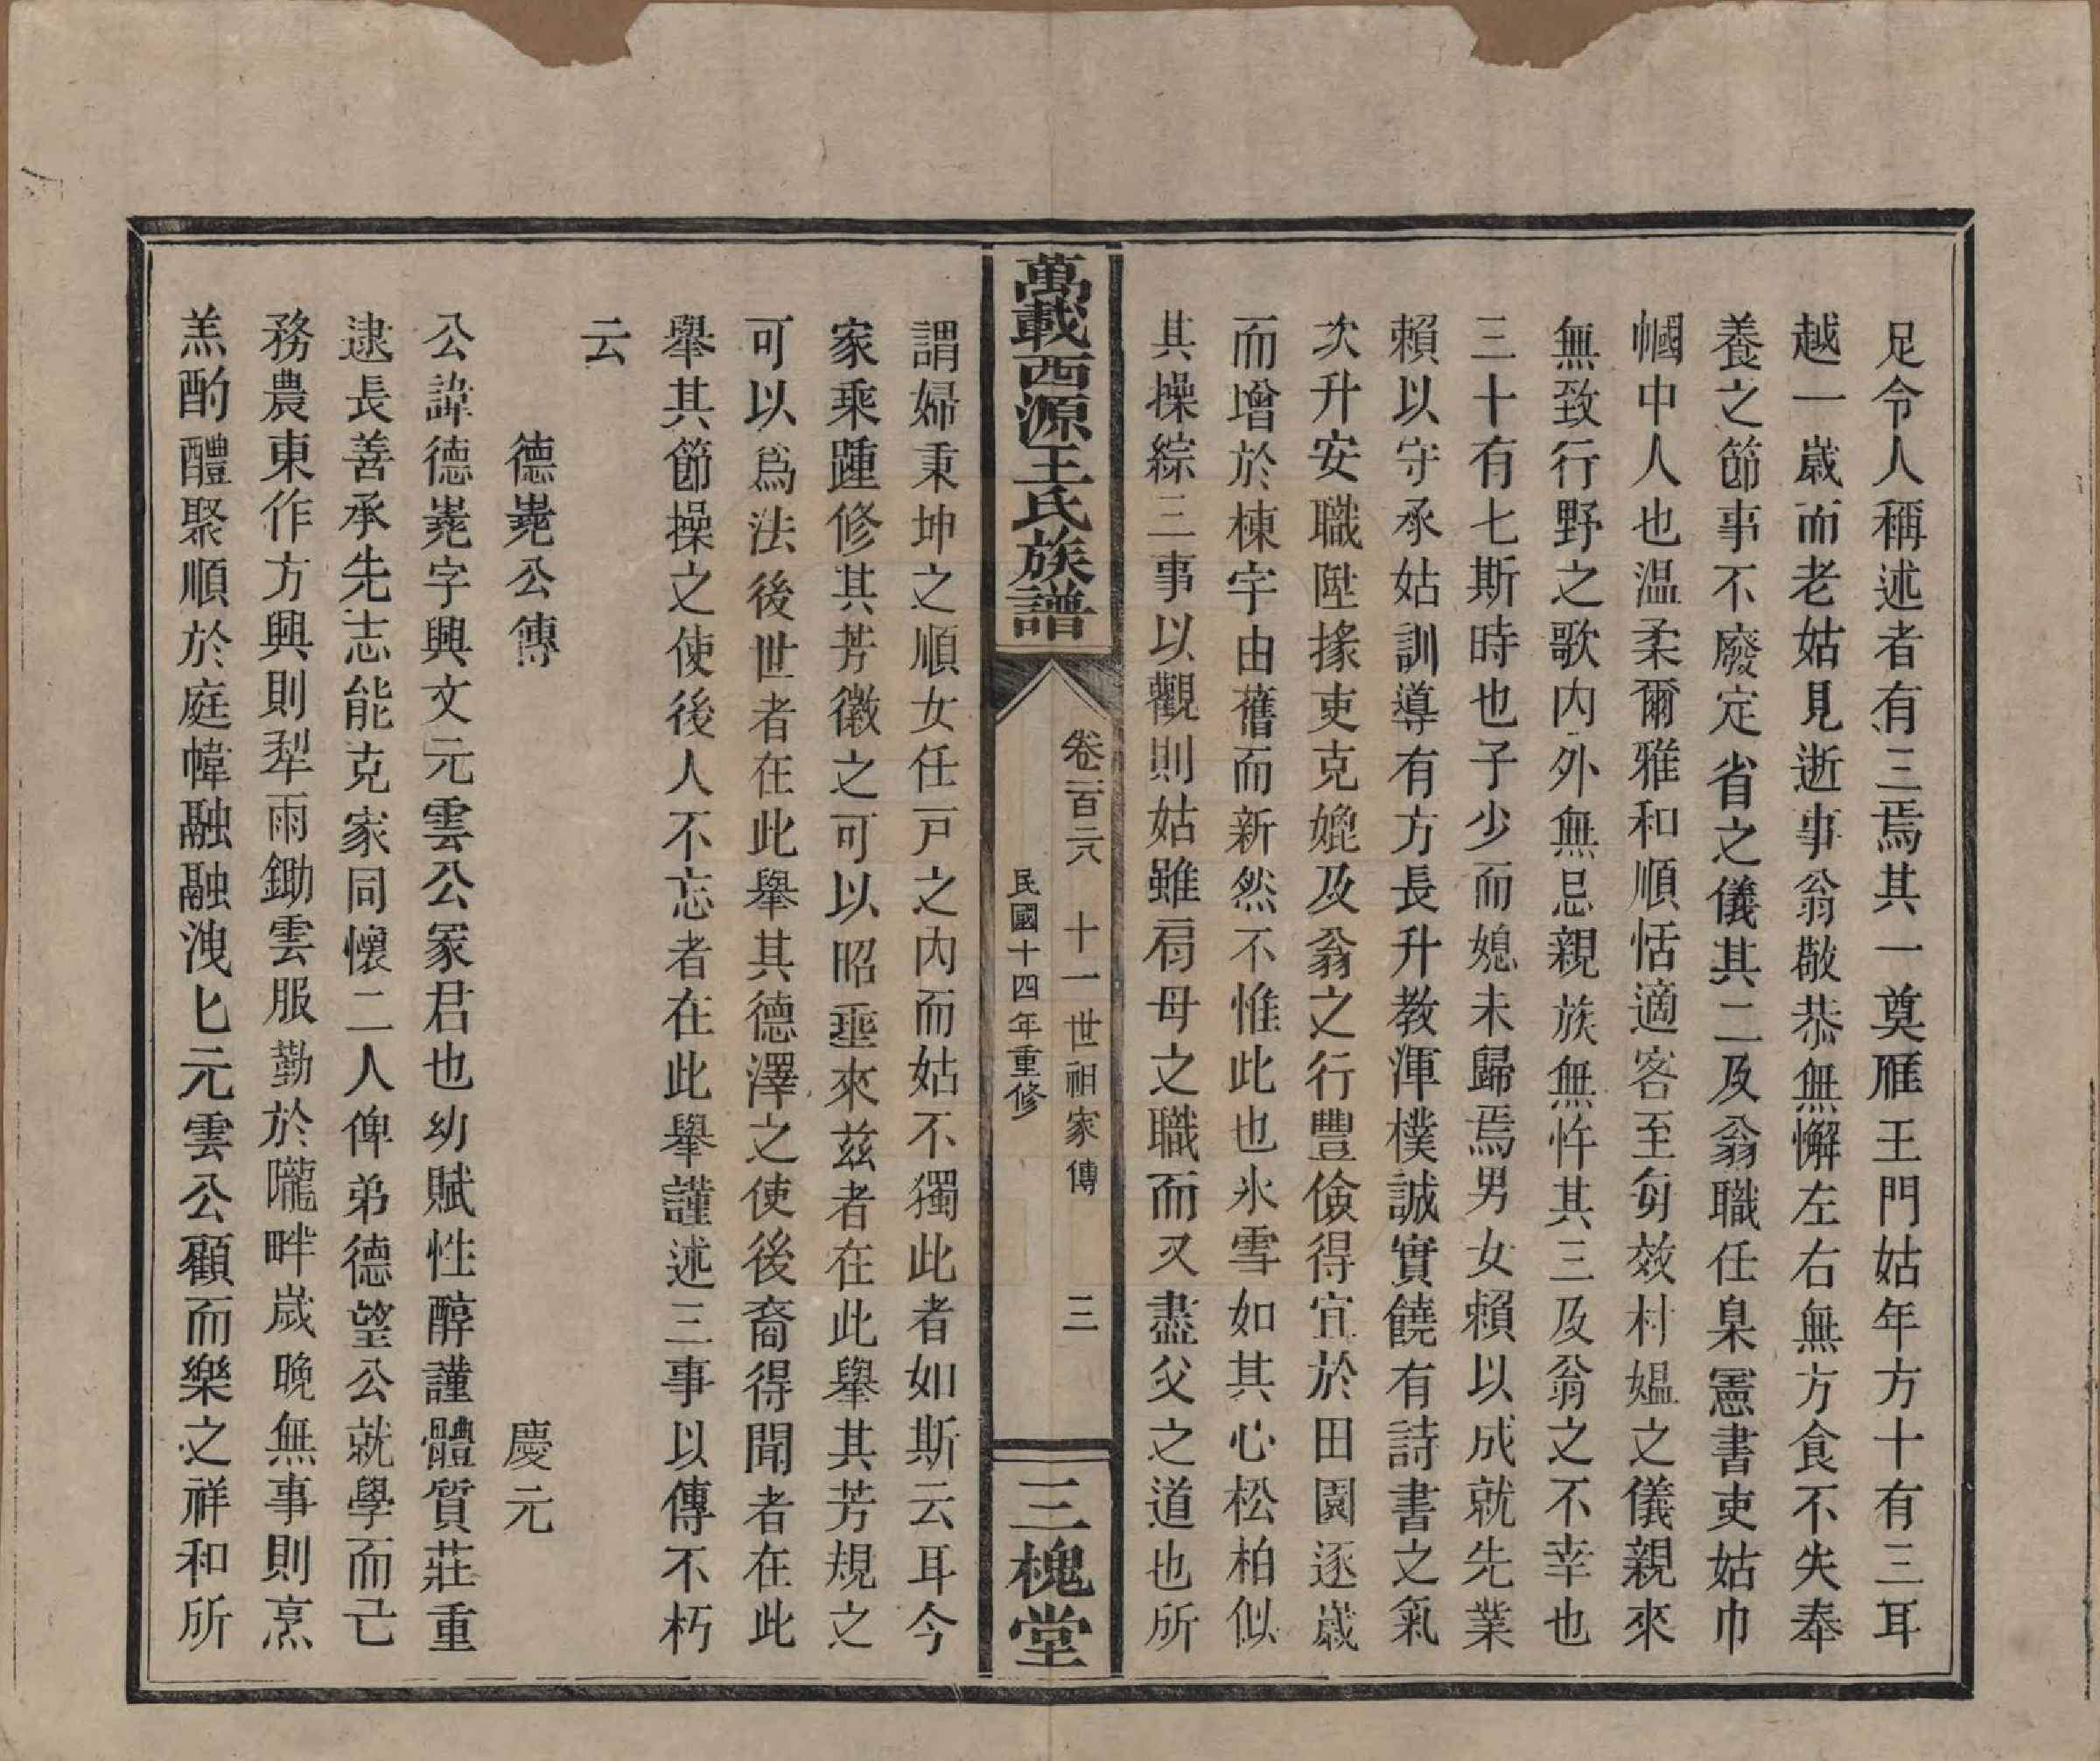 足令人稱述者有三焉其一奠雁王門姑年方十有三耳
越一歲而老姑見逝事翁敬恭無懈左右無方食不失奉
養之節事不廢定省之儀其二及翁職任臬憲書吏姑巾
幗中人也温柔爾雅和順恬適客至匆效村媼之儀親來
無致行野之歌内外無忌親族無忤其三及翁之不幸也
三十有七斯時也子少而媳未歸焉男女賴以成就先業
賴以守承姑訓導有方長升教渾樸誠實饒有詩書之氣
次升安職陞掾吏克媲及翁之行豐儉得宜於田園逐歲
而增於棟宇由舊而新然不惟此也氷雪如其心松柏似
其操綜三事以觀則姑雖爲母之職而又盡父之道也所
萬載西源王氏族譜
卷三百二八 十一世祖家傳 三
民國十四年重修
三槐堂
謂婦秉坤之順女任戸之内而姑不獨此者如斯云耳今
家乘踵修其芳徽之可以昭垂來兹者在此舉其芳規之
可以爲法後世者在此舉其德澤之使後裔得聞者在此
舉其節操之使後人不忘者在此舉謹述三事以傳不朽
云
德嵬公傳 慶元
公諱德嵬字興文元雲公冢君也幼賦性醇謹體質莊重
逮長善承先志能克家同懷二人俾弟德望公就學而己
務農東作方興則犁雨鋤雲服勤於隴畔歲晚無事則烹
羔酌醴聚順於庭幃融融洩匕元雲公顧而樂之祥和所